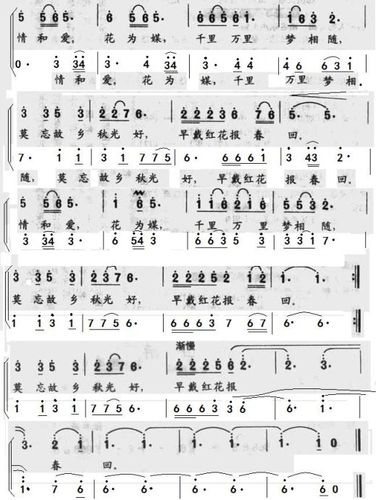 5 5 6 5. 6 5 6 5. 6 6 5 6 1 1 6 3 2
情和爱, 花为媒, 千里万里 梦相随,
0. 3 3 4 3. 4 3 3. 4 4 4 6 6 3 1
情和爱, 花为 媒, 千里 万里 梦相.
3 3 5 3 2 2 7 6. 2 2 2 3 6 7 6 5. 5.
莫忘故乡 秋光好, 早戴红花报 春 回.
7. 1 3 1 7 7 5 6. 6 6 6 1 3 4 3 2.
随, 莫忘故乡 秋光 好, 早戴 红花 报春 回.
5 5 6 5. 6 5 6 5. 1 1 6 2 1 6 5 5 3 2.
情和爱, 花为媒, 千里万里 梦相随,
3 3 4 3. 6 5 4 3. 6 6 3 5 3 3 3 1 7.
3 3 5 3 2 3 7 6. 2 2 2 5 2 1 2 1. 1.
莫忘故乡 秋光好, 早戴红花报 春 回.
1 1 3 1 7 7 5 6. 6 6 6 3 6 7 1. 6.
渐慢
3 3 5 3 2 2 7 6. 2 2 2 2 5 6 2. 3.
莫忘故乡 秋光好, 早戴红花报
1 1 3 1 7 7 5 6. 6 6 6 3 3 6 6. 1.
3. 2 1 1. 1. 1. 1 0
春 回.
1. 7 6 5. 6. 1. 1 0